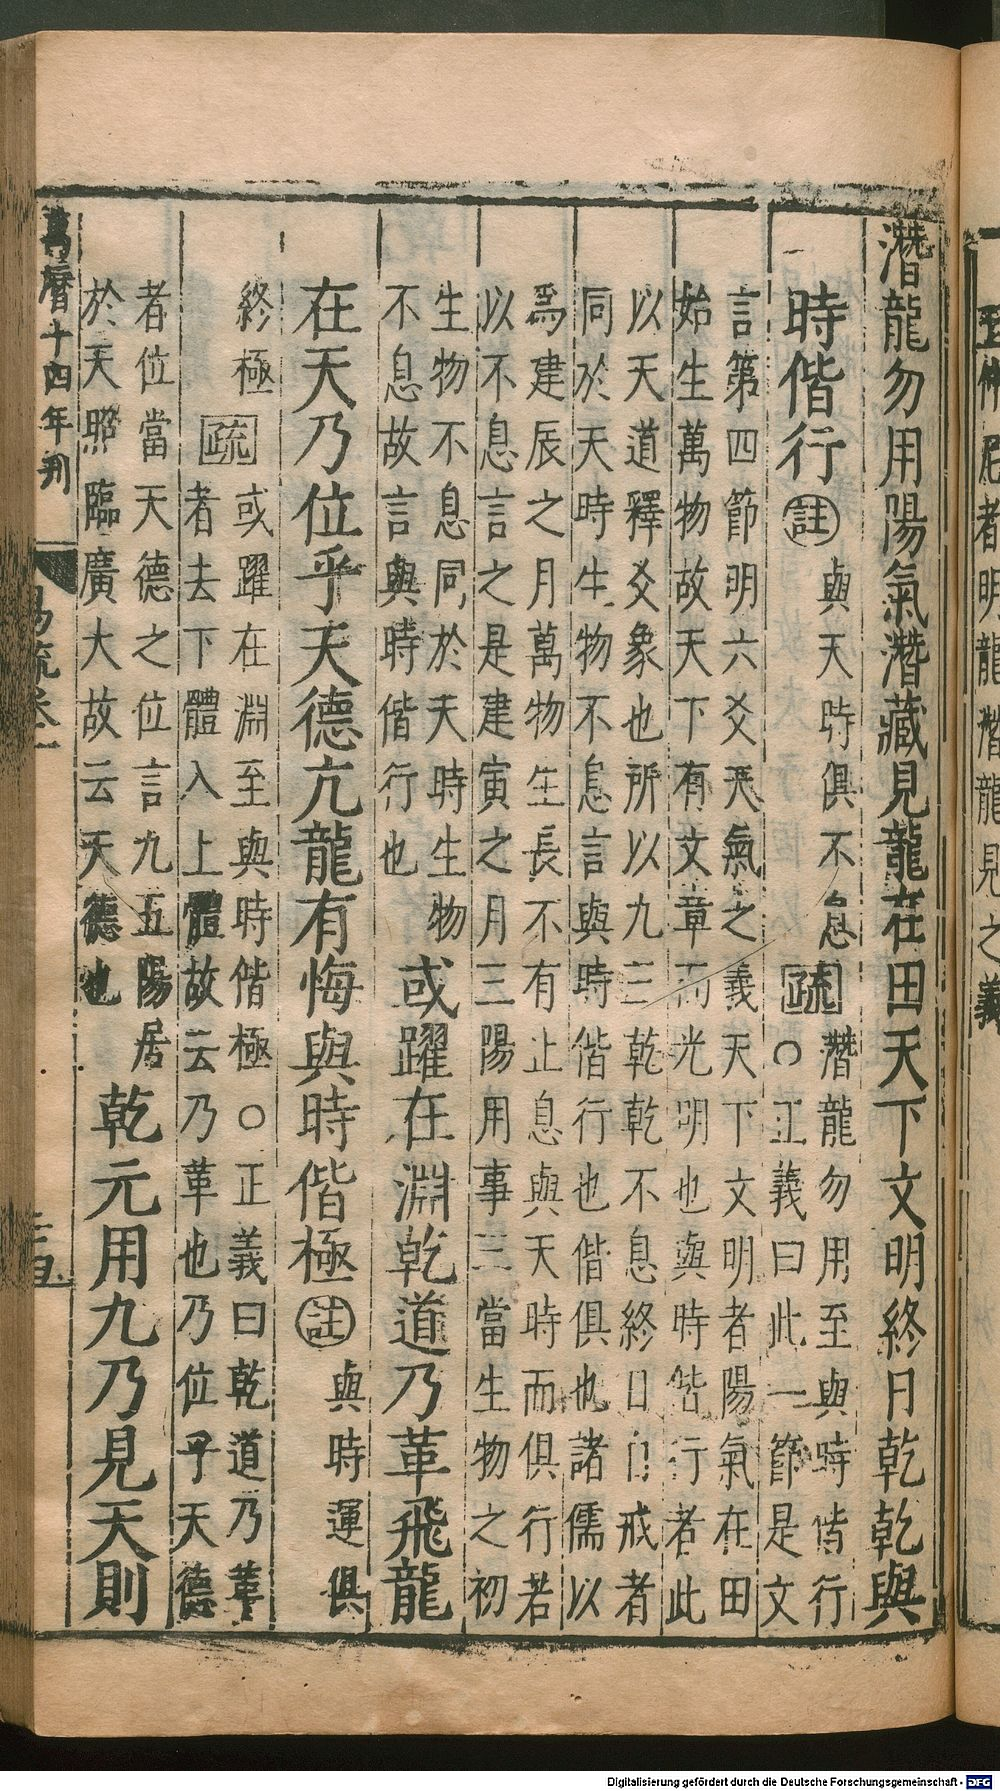 仲尼者明龍潛龍見之義
潛龍勿用陽氣潛藏見龍在田天下文明終日乾乾與
時偕行註與天時俱不息疏潛龍勿用至與時偕行
○正義曰此一節是文
言第四節明六爻天氣之義天下文明者陽氣在田
始生萬物故天下有文章而光明也與時偕行者此
以天道釋爻象也所以九三乾乾不息終日自戒者
同於天時生物不息言與時偕行也偕俱也諸儒以
爲建辰之月萬物生長不有止息與天時而俱行若
以不息言之是建寅之月三陽用事三當生物之初
生物不息同於天時生物
不息故言與時偕行也
或躍在淵乾道乃革飛龍
在天乃位乎天德亢龍有悔與時偕極註與時運俱
終極疏或躍在淵至與時偕極○正義曰乾道乃革
者去下體入上體故云乃革也乃位乎天德
者位當天德之位言九五陽居
於天照臨廣大故云天德也
乾元用九乃見天則
萬曆十四年刊
易疏卷一
Digitalisierung gefördert durch die Deutsche Forschungsgemeinschaft - DFG